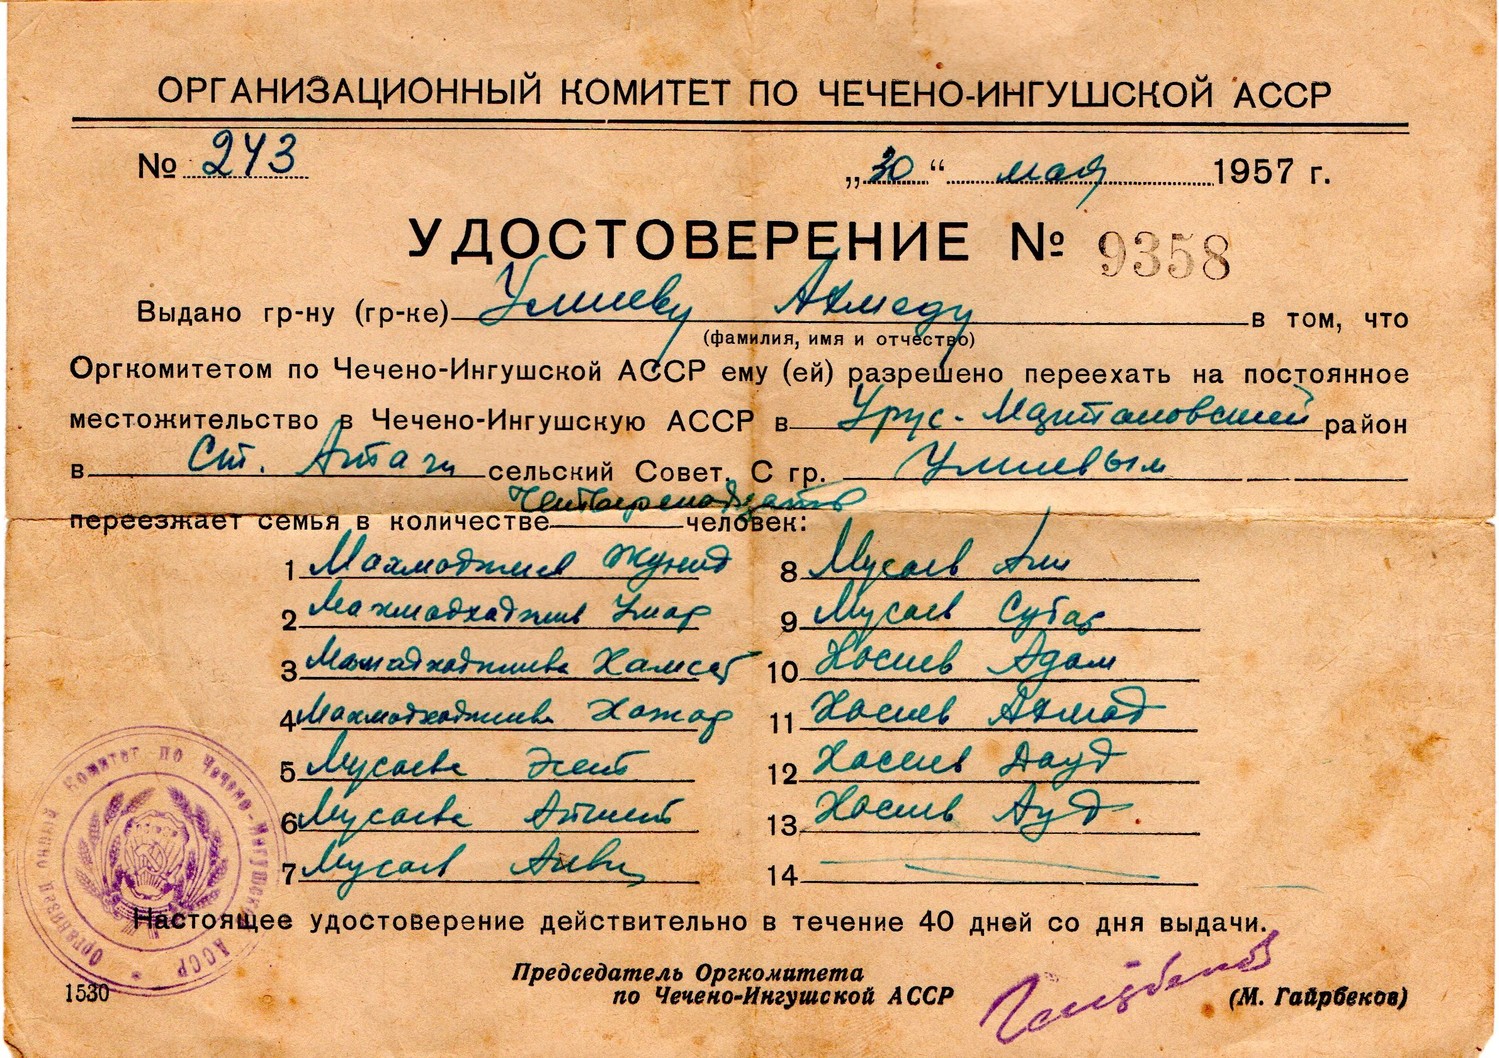 ОРГАНИЗАЦИОННЫЙ КОМИТЕТ ПО ЧЕЧЕНО-ИНГУШСКОЙ АССР
№ 243 „30“ мая 1957 г.
УДОСТОВЕРЕНИЕ № 9358
Выдано гр-ну (гр-ке) Умиеву Ахмеду в том, что
(фамилия, имя и отчество)
Оргкомитетом по Чечено-Ингушской АССР ему (ей) разрешено переехать на постоянное
местожительство в Чечено-Ингушскую АССР в Урус-Мартановский район
в Ст. Атаги сельский Совет. С гр. Умиевым
переезжает семья в количестве четырнадцать человек:
1 Махмоджиев
2 Махмадхаджиев Умар
3 Мамадхаджиева Хамсат
4 Махмадхаджиева Хажар
5 Мусаева
6 Мусаева
7 Мусаев
8 Мусаев Али
9 Мусаев
10 Хасиев Адам
11 Хасиев Ахмад
12 Хасиев Дауд
13 Хасиев Ауд
14
Настоящее удостоверение действительно в течение 40 дней со дня выдачи.
Председатель Оргкомитета
по Чечено-Ингушской АССР Гайрбеков (М. Гайрбеков)
1530
Организационный Комитет по Чечено-Ингушской АССР